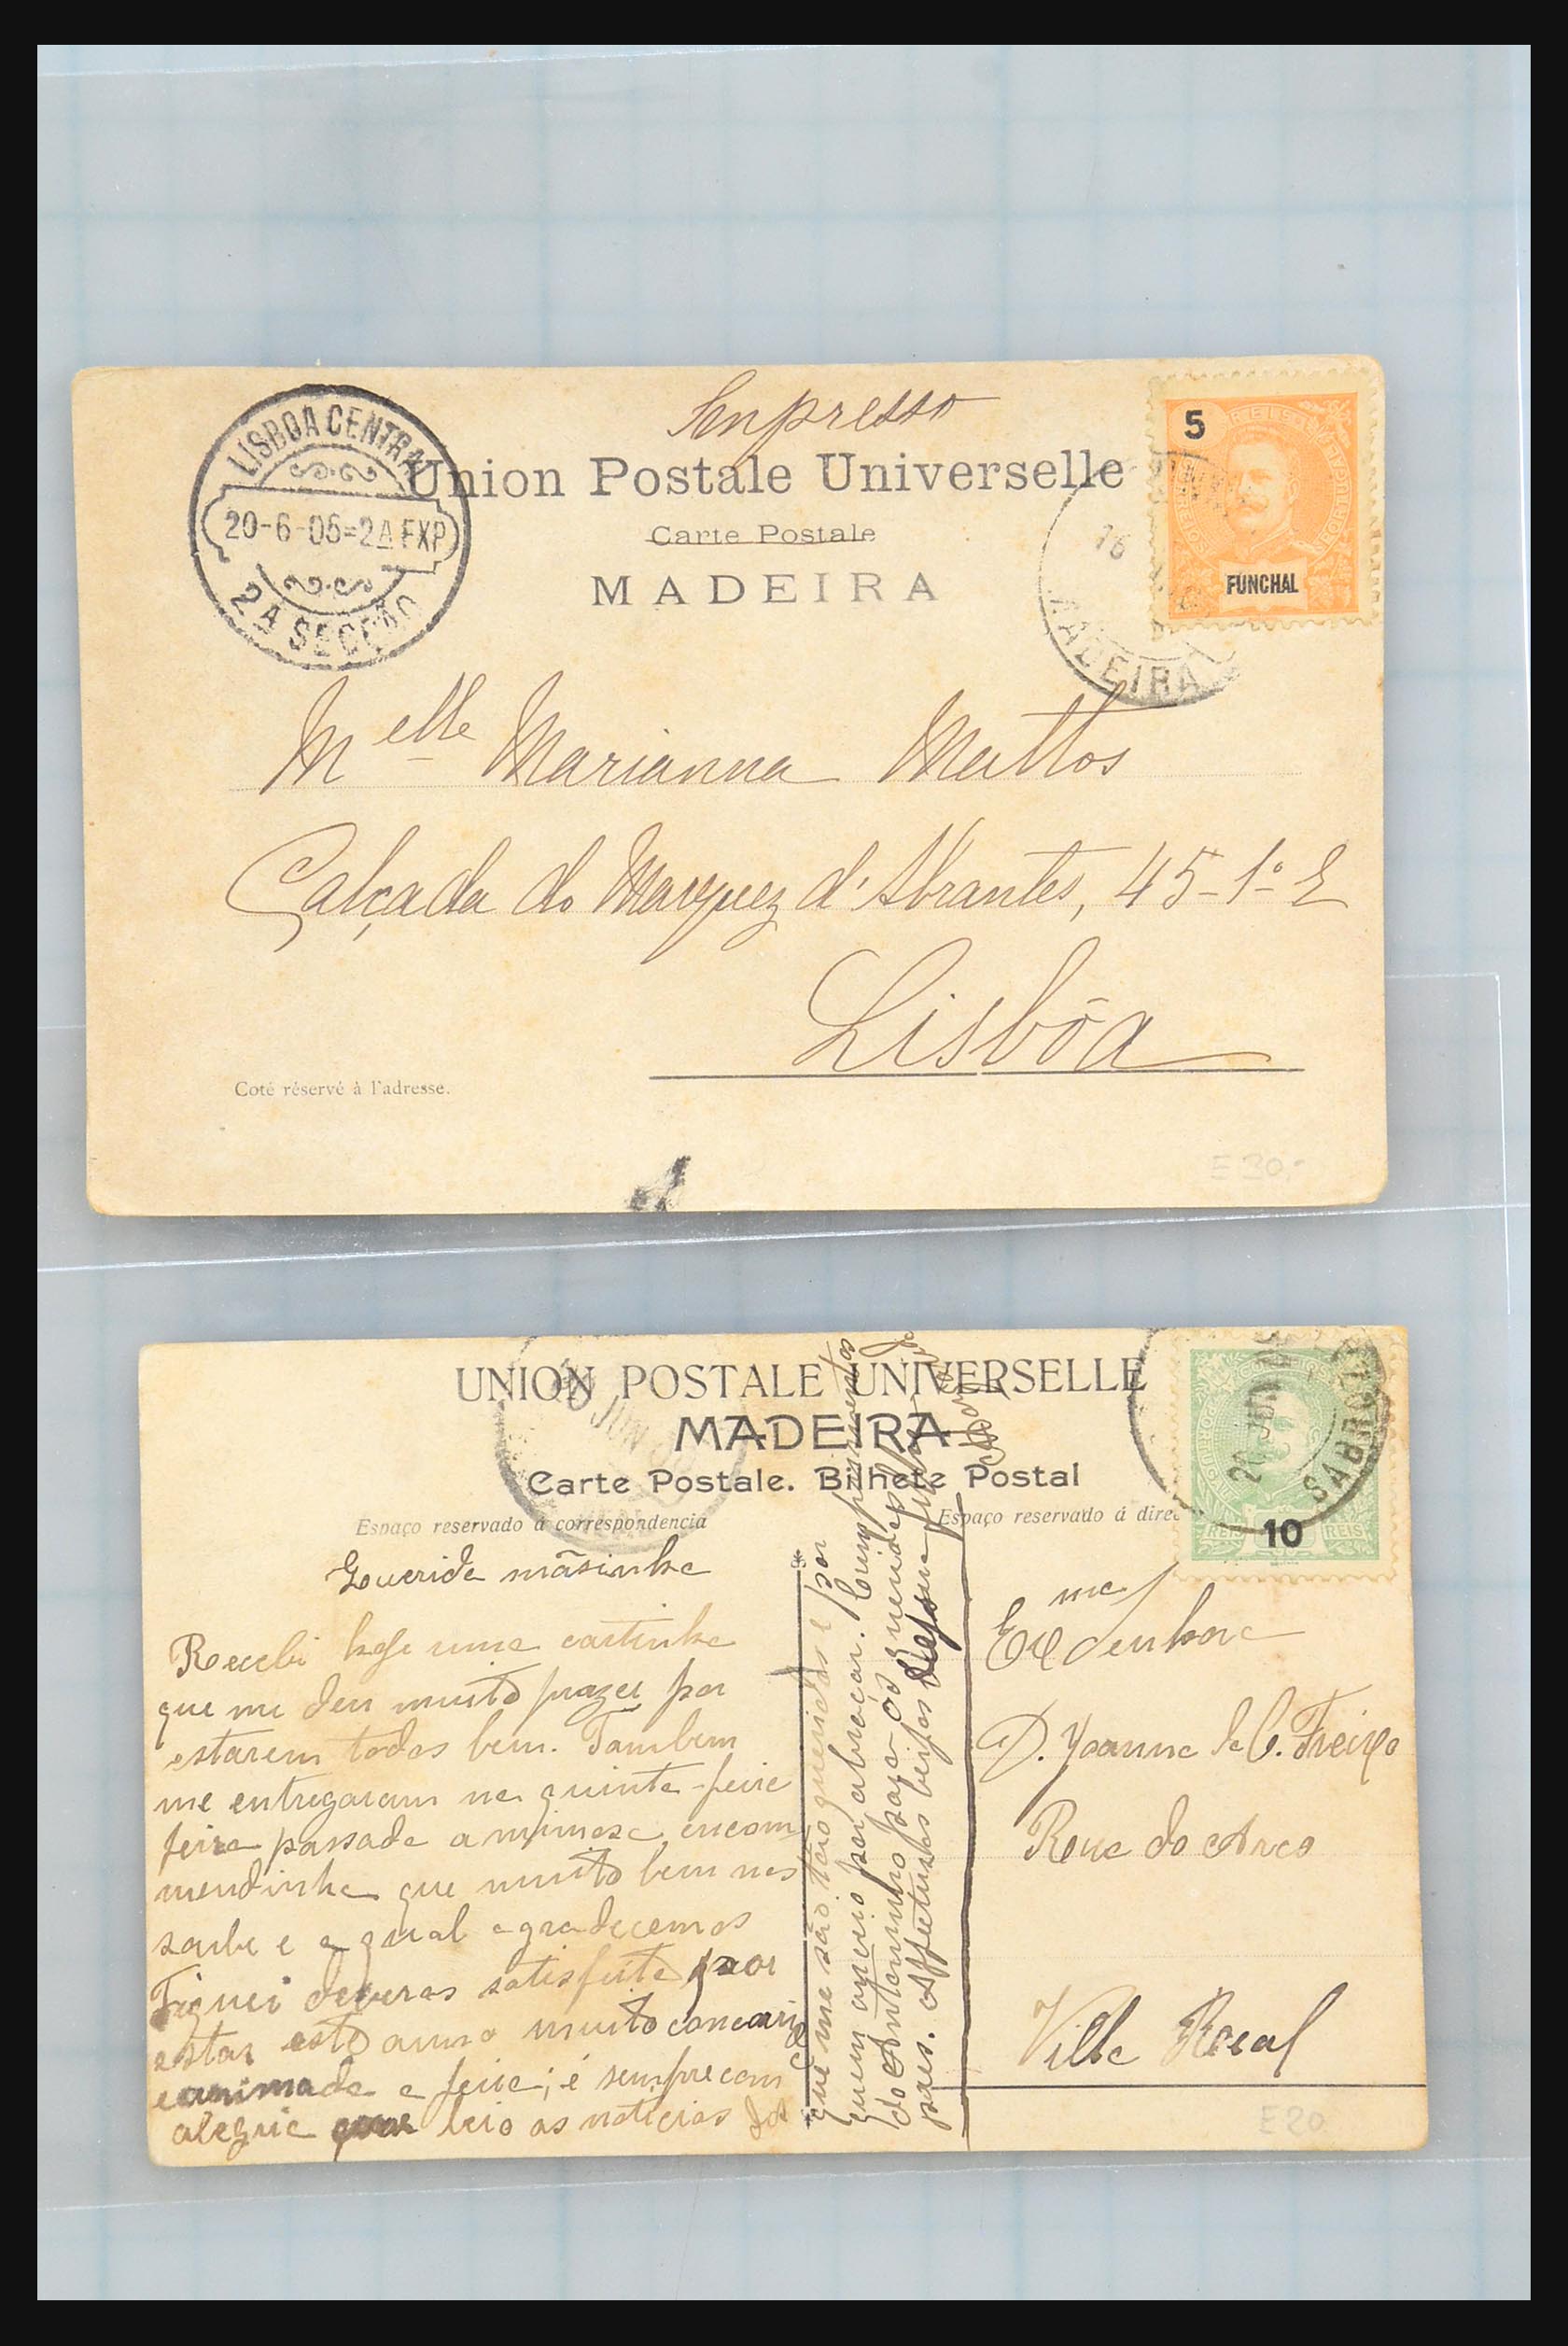 Impresso
LISBOA CENTRAL
20-6-06=2A EXP
2A SECÇÃO
Union Postale Universelle
Carte Postale
MADEIRA
5
REIS
FUNCHAL
16
MADEIRA
Melle Marianna Mattos
Calçada do Marquez d'Abrantes, 45-1º E
Lisbôa
Coté réservé à l'adresse.
E 30.-
UNION POSTALE UNIVERSELLE
MADEIRA
Carte Postale. Bilhete Postal
Espaço reservado á correspondencia
Espaço reservado á dire
20 JUN
SABROZA
REIS 10 REIS
Querida mãsinha
Recebi hoje uma cartinha
que me deu muito prazer por
estarem todos bem. Tambem
me entregaram na quinta-feira
feira passada a mimosa encom
mendinha que muito bem nos
soube e a qual agradecemos
Fiquei deveras satisfeita por
estar este anno muito concorrida
e animada a feira; é sempre com
alegria que leio as noticias do
que me são tão queridas e por
quem anceio por abraçar. Cumprimentos
do Antoninho para os queridos
paes. Affectuosos beijos da sua filha
Exma Senhora
D. Joanna de C. Freixo
Rua do Arco
Villa Real
E20